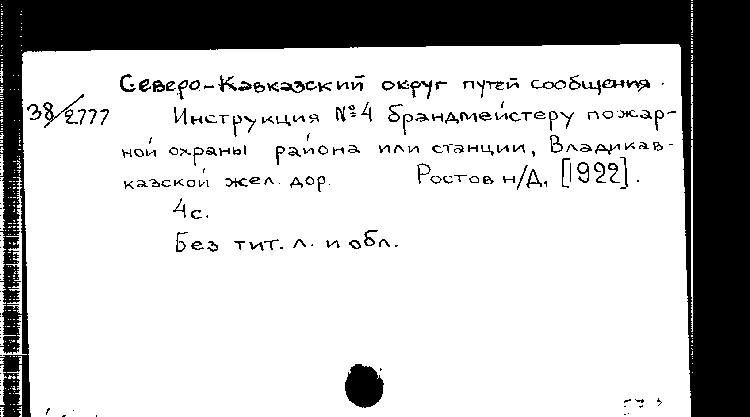 Северо-Кавказский округ путей сообщения.
38/2777 Инструкция №4 брандмейстеру пожар-
ной охраны района или станции, Владикав-
казской жел. дор. Ростов н/Д, [1922].
4с.
Без тит. л. и обл.